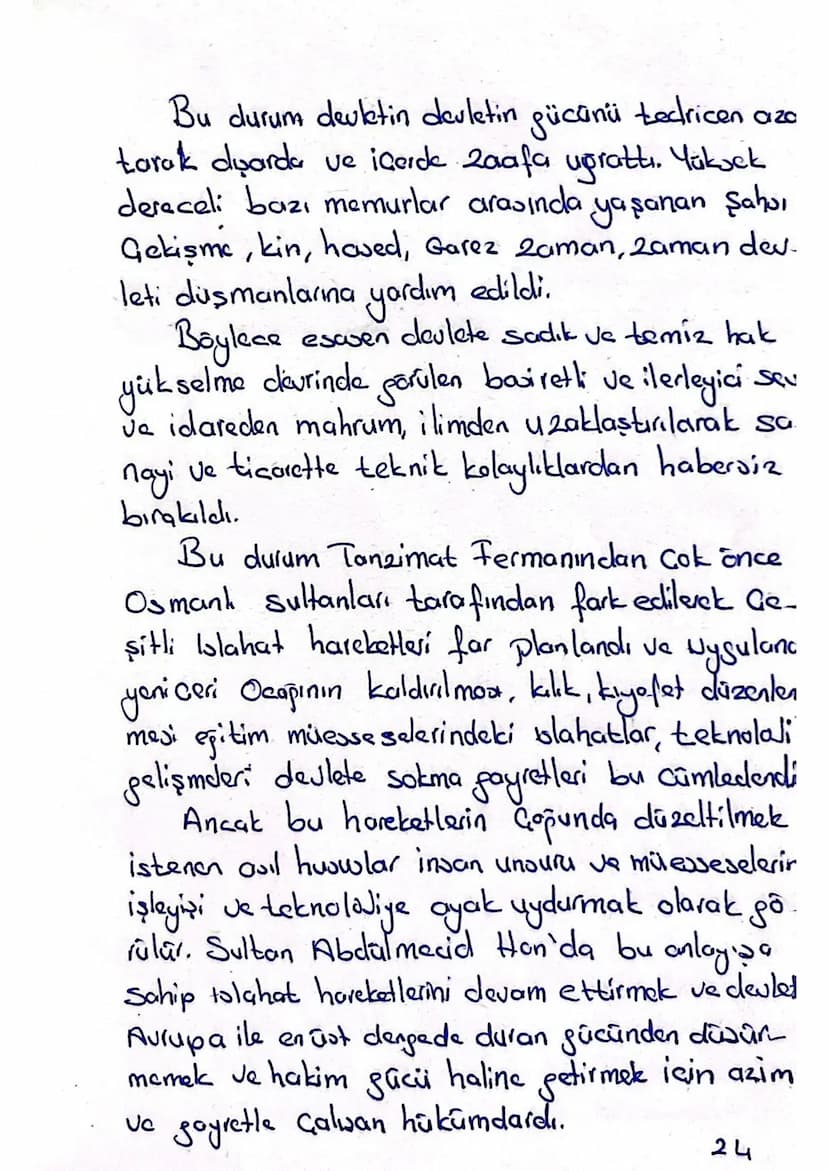 Bu durum devletin devletin gücünü tedricen aza
tarak dışarda ve içerde zaafa uğrattı. Yüksek
dereceli bazı memurlar arasında yaşanan Şahsi
Çekişme, kin, hased, Garez zaman, zaman dev-
leti düşmanlarına yardım edildi.
Böylece esasen devlete sadık ve temiz hak
yükselme devrinde görülen basiretli ve ilerleyici sev
ve idareden mahrum, ilimden uzaklaştırılarak sa
nayi ve ticarette teknik kolaylıklardan habersiz
bırakıldı.
Bu durum Tanzimat Fermanından Çok önce
Osmanlı sultanları tarafından fark edilerek Çe-
şitli Islahat hareketleri far planlandı ve uygulanc
yeniçeri Ocağının kaldırılması, kılık, kıyafet düzenlen
mesi eğitim müesseselerindeki ıslahatlar, teknolaji
gelişmeleri devlete sokma gayretleri bu cümledendi
Ancak bu hareketlerin Çoğunda düzeltilmek
istenen asıl hususlar insan unsuru ve müesseselerir
işleyişi ve teknolojiye ayak uydurmak olarak gö
rülür. Sultan Abdülmecid Han'da bu anlayışa
Sahip ıslahat hareketlerini devam ettirmek ve devlet
Avrupa ile en üst dengede duran gücünden düşür
memek ve hakim gücü haline getirmek için azim
ve gayretle Çalışan hükümdardı.
24